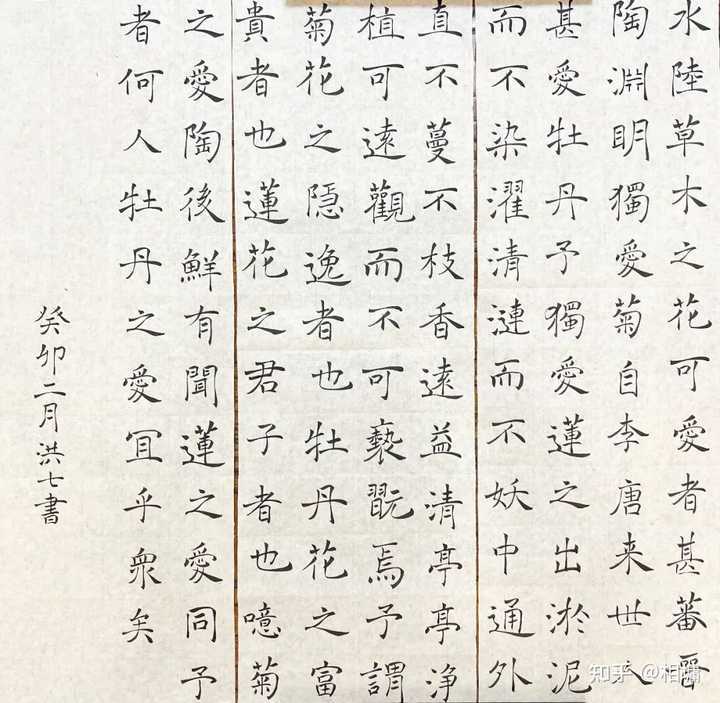 水陸草木之花可愛者甚蕃晉
陶淵眀獨愛菊自李唐来世人
甚愛牡丹予獨愛蓮之出淤泥
而不染濯清漣而不妖中通外
直不蔓不枝香遠益清亭亭浄
植可遠觀而不可褻翫焉予謂
菊花之隠逸者也牡丹花之富
貴者也蓮花之君子者也噫菊
之愛陶後鮮有聞蓮之愛同予
者何人牡丹之愛冝乎衆矣
癸卯二月洪七書
知乎 @相嘯